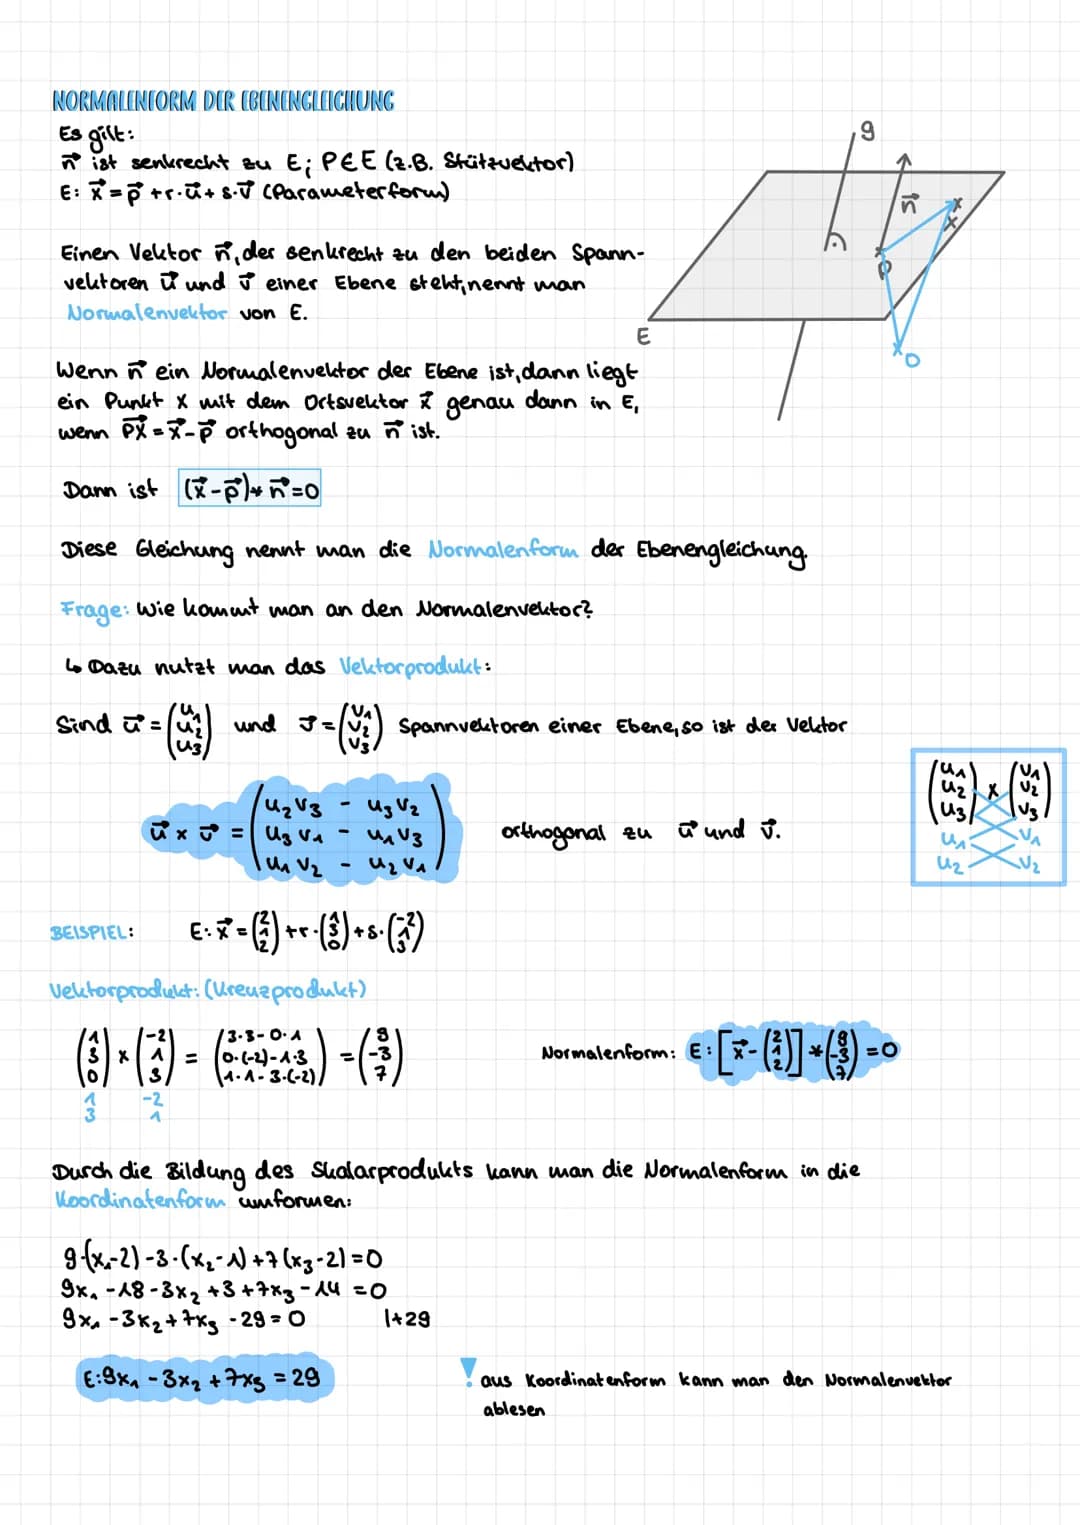 NORMALENFORM DER EBENENGLEICHUNG
Es gilt:
n⃗ ist senkrecht zu E; P∈E (z.B. Stützvektor)
E: x⃗ = p⃗ + r·u⃗ + s·v⃗ (Parameterform)
Einen Vektor n⃗, der senkrecht zu den beiden Spann-
vektoren u⃗ und v⃗ einer Ebene steht, nennt man
Normalenvektor von E.
g
n⃗
x
x
P
E
O
Wenn n⃗ ein Normalenvektor der Ebene ist, dann liegt
ein Punkt X mit dem Ortsvektor x⃗ genau dann in E,
wenn PX⃗ = x⃗ - p⃗ orthogonal zu n⃗ ist.
Dann ist (x⃗ - p⃗) * n⃗ = 0
Diese Gleichung nennt man die Normalenform der Ebenengleichung.
Frage: Wie kommt man an den Normalenvektor?
↳ Dazu nutzt man das Vektorprodukt:
Sind u⃗ = (u₁ u₂ u₃) und v⃗ = (v₁ v₂ v₃) Spannvektoren einer Ebene, so ist der Vektor
u⃗ × v⃗ = (u₂v₃ - u₃v₂ u₃v₁ - u₁v₃ u₁v₂ - u₂v₁) orthogonal zu u⃗ und v⃗.
(u₁ u₂ u₃) × (v₁ v₂ v₃)
u₁ v₁
u₂ v₂
BEISPIEL: E: x⃗ = (2 1 2) + r·(1 3 0) + s·(-2 1 3)
Vektorprodukt: (Kreuzprodukt)
(1 3 0) × (-2 1 3) = (3·3-0·1 0·(-2)-1·3 1·1-3·(-2)) = (9 -3 7)
1 -2
3 1
Normalenform: E: [x⃗ - (2 1 2)] * (9 -3 7) = 0
Durch die Bildung des Skalarprodukts kann man die Normalenform in die
Koordinatenform umformen:
9·(x₁-2) -3·(x₂-1) +7(x₃-2) = 0
9x₁ -18 -3x₂ +3 +7x₃ -14 = 0
9x₁ -3x₂ +7x₃ -29 = 0 |+29
E: 9x₁ -3x₂ +7x₃ = 29
! aus Koordinatenform kann man den Normalenvektor
ablesen